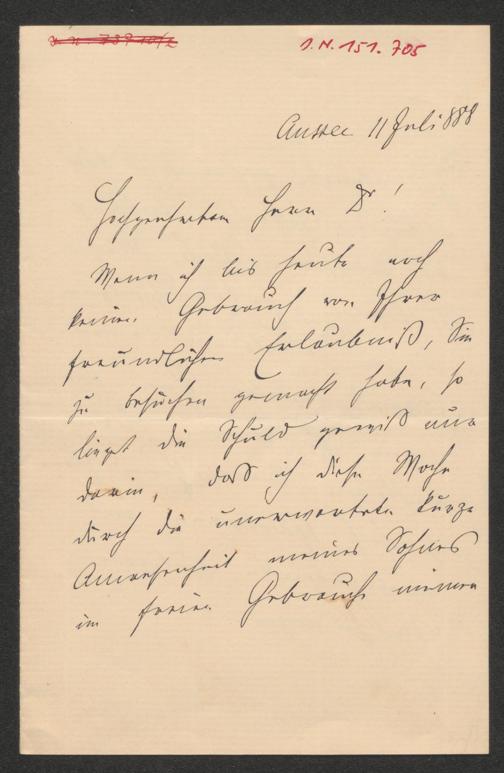 I. N. 151.705
Aussee 11 Juli 888
Hochgeehrter Herr Dr!
Wenn ich bis heute noch
keinen Gebrauch von Ihrer
freundlichen Erlaubniß, Sie
zu besuchen gemacht habe, so
liegt die Schuld gewiß nur
darin, daß ich diese Woche
durch die unerwartete kurze
Anwesenheit meines Sohnes
im freien Gebrauche meiner